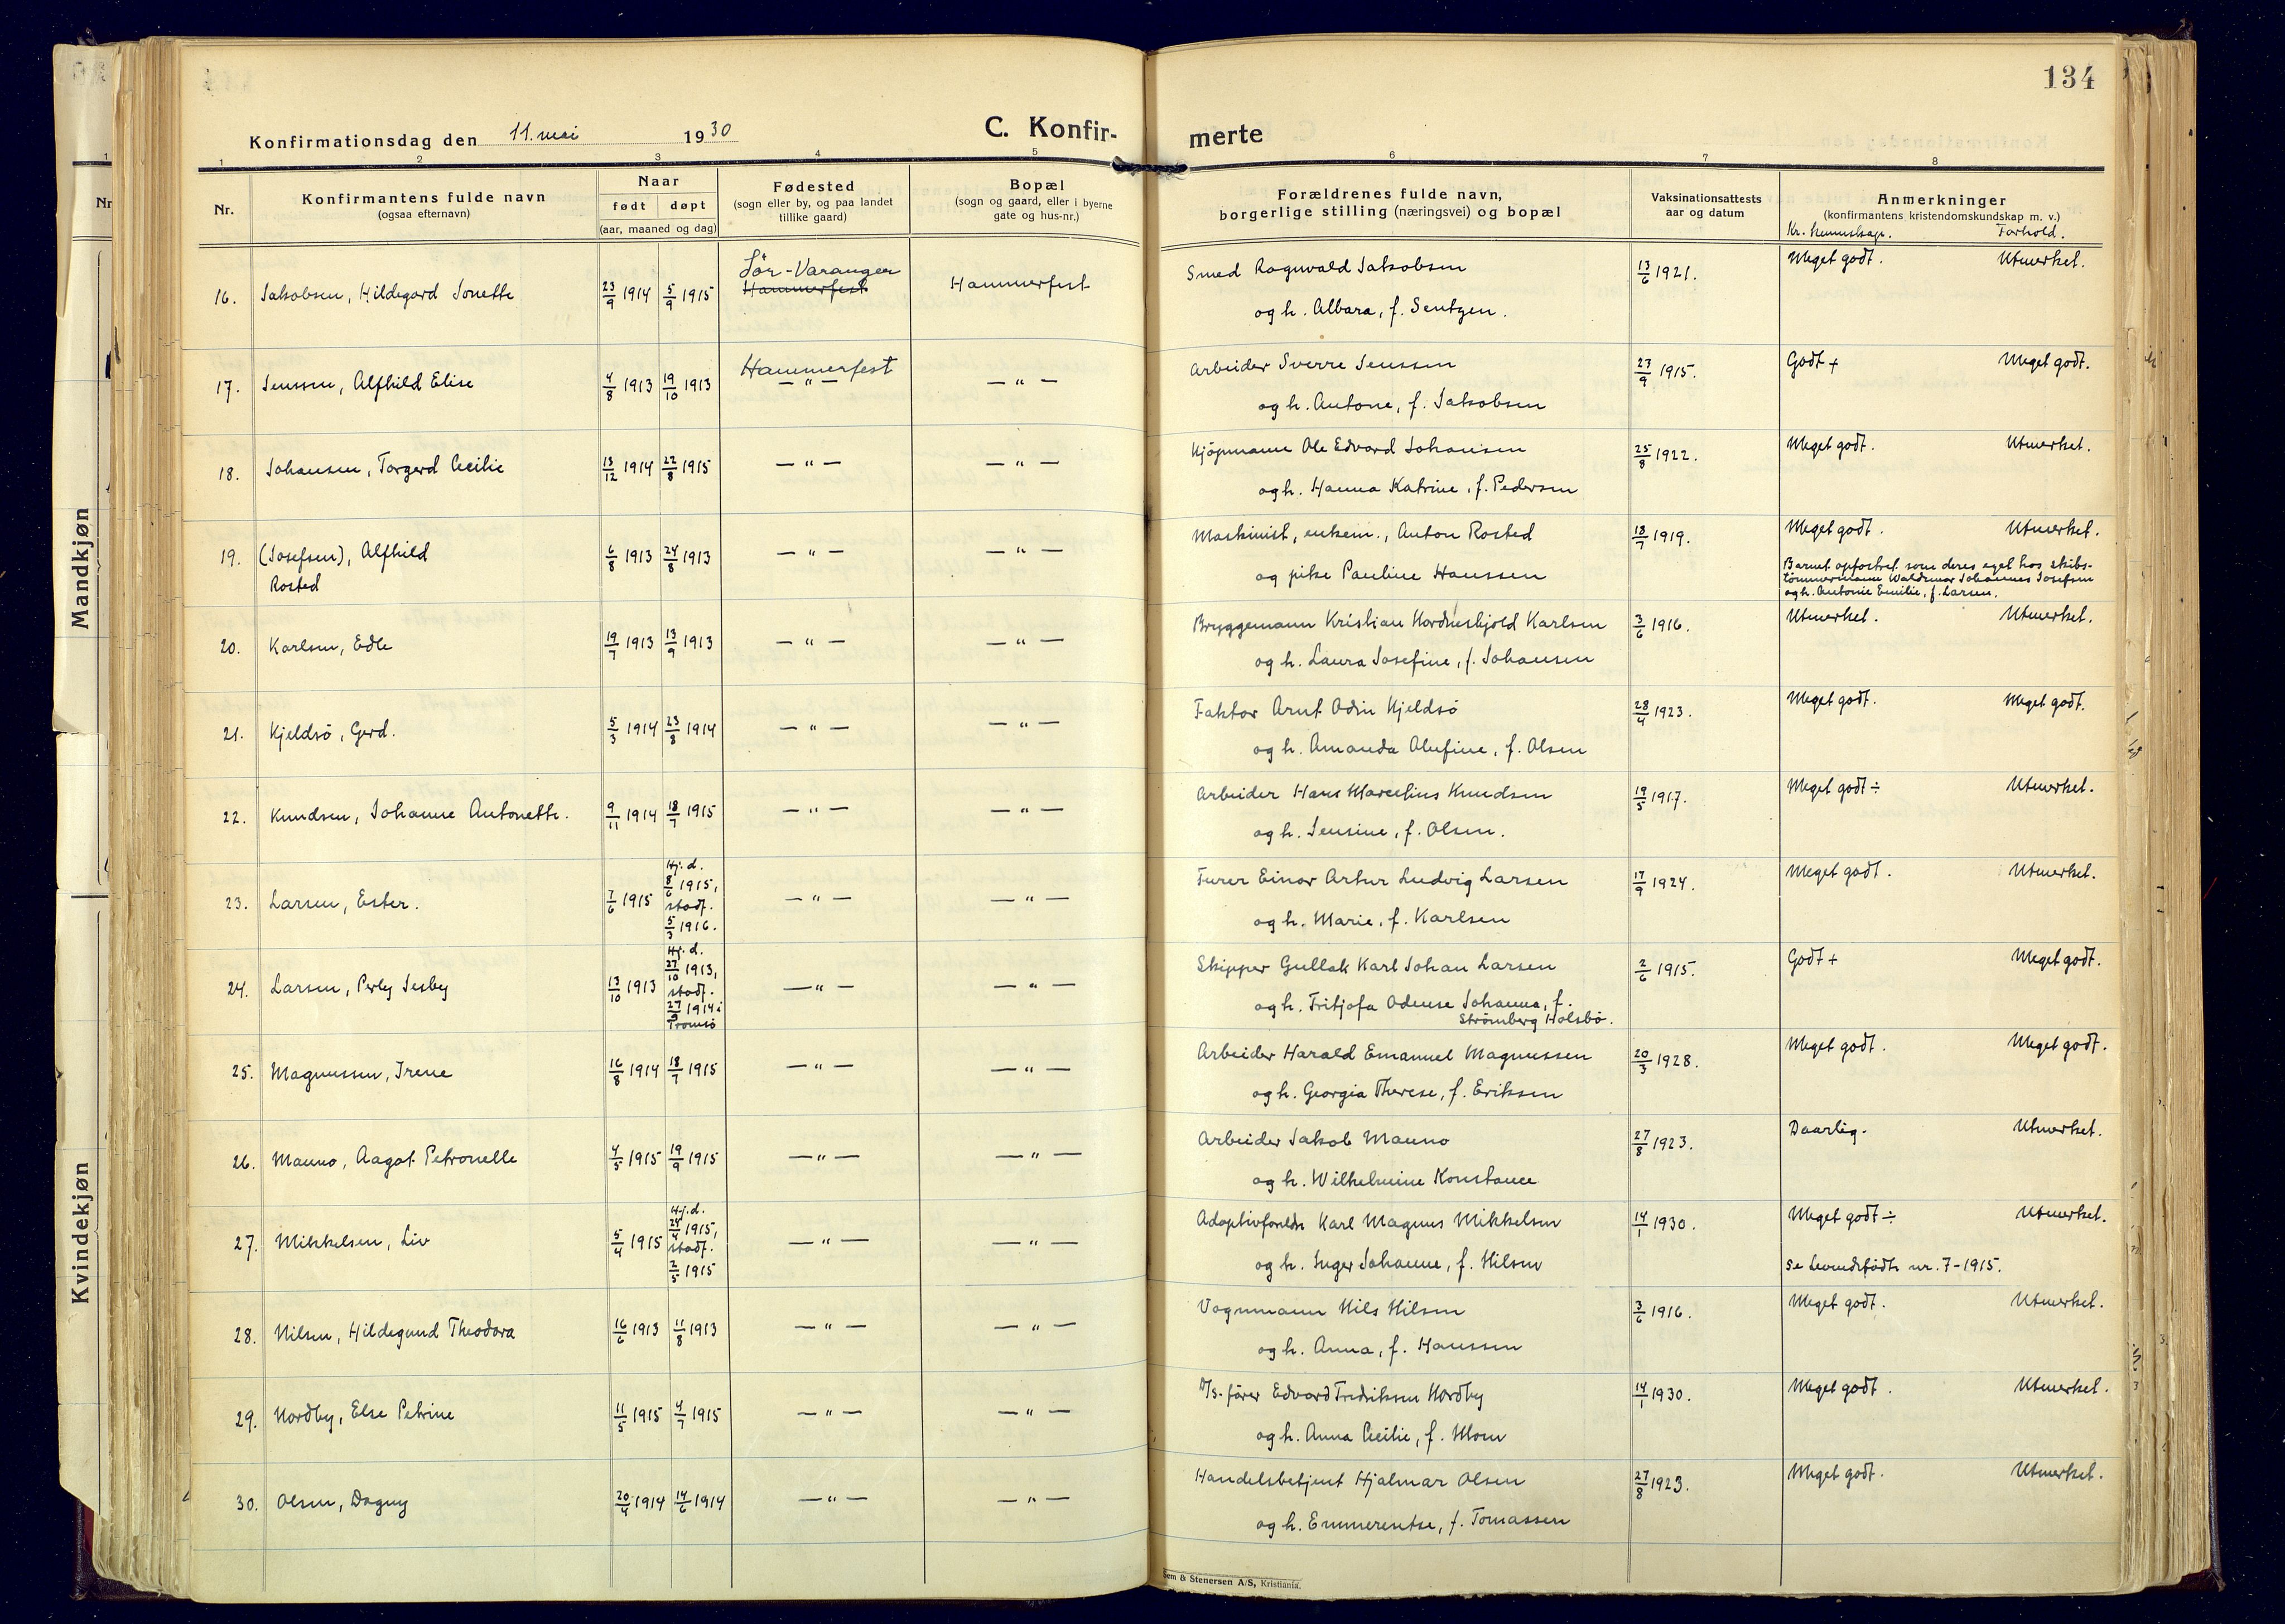 134
Konfirmationsdag den 11. mai 1930
C. Konfir-
merte
1 2 3 4 5 6 7 8
Nr.
Konfirmantens fulde navn
(ogsaa efternavn)
Naar
født døpt
(aar, maaned og dag)
Fødested
(sogn eller by, og paa landet
tillike gaard)
Bopæl
(sogn og gaard, eller i byerne
gate og hus-nr.)
Forældrenes fulde navn,
borgerlige stilling (næringsvei) og bopæl
Vaksinationsattests
aar og datum
Anmerkninger
(konfirmantens kristendomskundskap m. v.)
Kr. kunnskap. Forhold.
Mandkjøn
Kvindekjøn
16. Jakobsen, Hildegard Jonette 23/9 1914 5/9 1915 Sör-Varanger Hammerfest Hammerfest Smed Ragnvald Jakobsen 13/6 1921. Meget godt. Utmerket.
og h. Albara, f. Sentzen.
17. Jenssen, Alfhild Elise 4/8 1913 19/10 1913 Hammerfest — " — — " — Arbeider Sverre Jenssen 23/9 1915. Godt + Meget godt.
og h. Antone, f. Jakobsen
18. Johansen, Torgerd Cecilie 13/12 1914 22/8 1915 — " — — " — Kjöpmann Ole Edvard Johansen 25/8 1922. Meget godt. Utmerket.
og h. Hanna Katrine, f. Pedersen
19. (Josefsen), Alfhild 6/8 1913 24/8 1913 — " — — " — Maskinist, enkem., Anton Rosted 18/7 1919. Meget godt. Utmerket.
Rosted
og pike Pauline Hanssen
Barnet opfostret som deres eget hos skibs-
tömmermann Waldemar Johannes Josefsen
og h. Antonie Emilie, f. Larsen.
20. Karlsen, Edle 19/7 1913 13/9 1913 — " — — " — Bryggemann Kristian Nordenskjold Karlsen 3/6 1916. Utmerket. Utmerket.
og h. Laura Josefine, f. Johansen
21. Kjeldsö, Gerd. 5/3 1914 23/8 1914 — " — — " — Faktor Arnt Odin Kjeldsö 28/4 1923. Meget godt. Meget godt.
og h. Amanda Alufine, f. Olsen
22. Knudsen, Johanne Antonette. 9/11 1914 18/7 1915 — " — — " — Arbeider Hans Marcelius Knudsen 19/5 1917. Meget godt ÷ Utmerket.
og h. Jensine, f. Olsen.
23. Larsen, Ester. 7/6 1915 Hj. d. 8/6 1915, stadf. 5/3 1916. — " — — " — Furer Einar Artur Ludvig Larsen 17/9 1924. Meget godt. Utmerket.
og h. Marie, f. Karlsen
24. Larsen, Perly Jesby 13/10 1913 Hj. d. 27/10 1913, stadf. 27/9 1914 i Tromsö — " — — " — Skipper Gullak Karl Johan Larsen 2/6 1915. Godt + Meget godt.
og h. Fritjofa Odense Johanna, f.
Strömberg Holsbö.
25. Magnussen, Irene 16/8 1914 18/7 1915 — " — — " — Arbeider Harald Emanuel Magnussen 20/3 1928. Meget godt. Meget godt.
og h. Georgia Therese, f. Eriksen
26. Mauno, Aagot Petronelle 4/5 1915 19/9 1915 — " — — " — Arbeider Jakob Mauno 27/8 1923. Daarlig. Utmerket.
og h. Wilhelmine Konstance
27. Mikkelsen, Liv 5/4 1915 Hj. d. 24/4 1915, stadf. 2/5 1915 — " — — " — Adoptivforeldre Karl Magnus Mikkelsen 14/1 1930. Meget godt ÷ Utmerket.
og h. Inger Johanne, f. Nilsen
Se Levendefödte nr. 7-1915.
28. Nilsen, Hildegund Theodora 16/6 1913 11/8 1913 — " — — " — Vognmann Nils Nilsen 3/6 1916. Meget godt. Utmerket.
og h. Anna, f. Hanssen
29. Nordby, Else Petrine 11/5 1915 4/7 1915 — " — — " — D/S-förer Edvard Fredriksen Nordby 14/1 1930. Meget godt. Utmerket.
og h. Anna Cecilie, f. Moen
30. Olsen, Dagny 20/4 1914 14/6 1914 — " — — " — Handelsbetjent Hjalmar Olsen 27/8 1923. Meget godt. Utmerket.
og h. Emmerentse, f. Tomassen
Sem & Stenersen A/S, Kristiania.